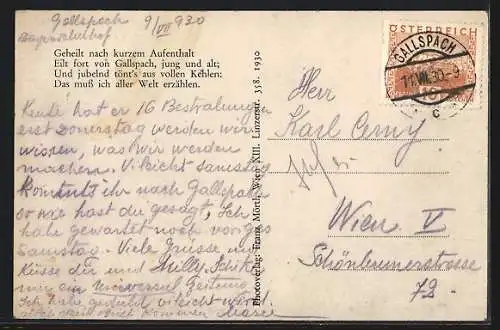 Gallspach 9/VII 930
Geheilt nach kurzem Aufenthalt
Eilt fort von Gallspach, jung und alt;
Und jubelnd tönt's aus vollen Kehlen:
Das muß ich aller Welt erzählen.
Heute hat er 16 Bestralungen
erst Donerstag werden wir
wissen, was wir werden
machen. Vileicht samstag
kommts ihr nach Gallspach
so wie hast du gesagt, Ich
habe gewartet noch voriges
Samstag. Viele Grüsse und
Küsse dir und Milly. Schike
mir ein Universal Zeitung.
Ich habe geduld vileicht wird
Photoverlag: Franz Mörtl, Wien XIII. Linzerstr. 358. 1930
ÖSTERREICH
GALLSPACH
11.VII.30-9
c
Herr
Karl Cerny
Wien V
Schönbrunnerstrasse
79.